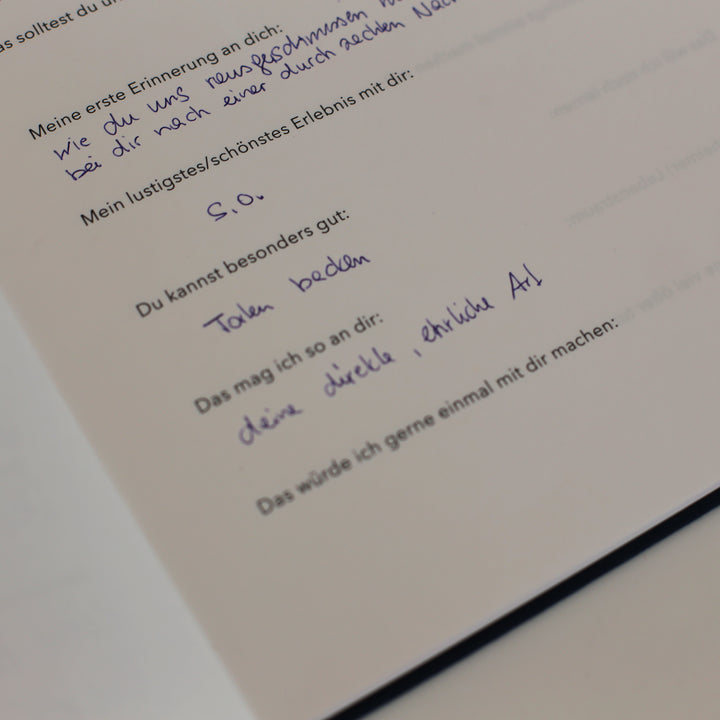 as solltest du u
Meine erste Erinnerung an dich:
wie du uns rausgeschmissen
bei dir nach einer durch zechten Nac
Mein lustigstes/schönstes Erlebnis mit dir:
S.O.
Du kannst besonders gut:
Torten backen
Das mag ich so an dir:
deine direkte, ehrliche Art
Das würde ich gerne einmal mit dir machen: